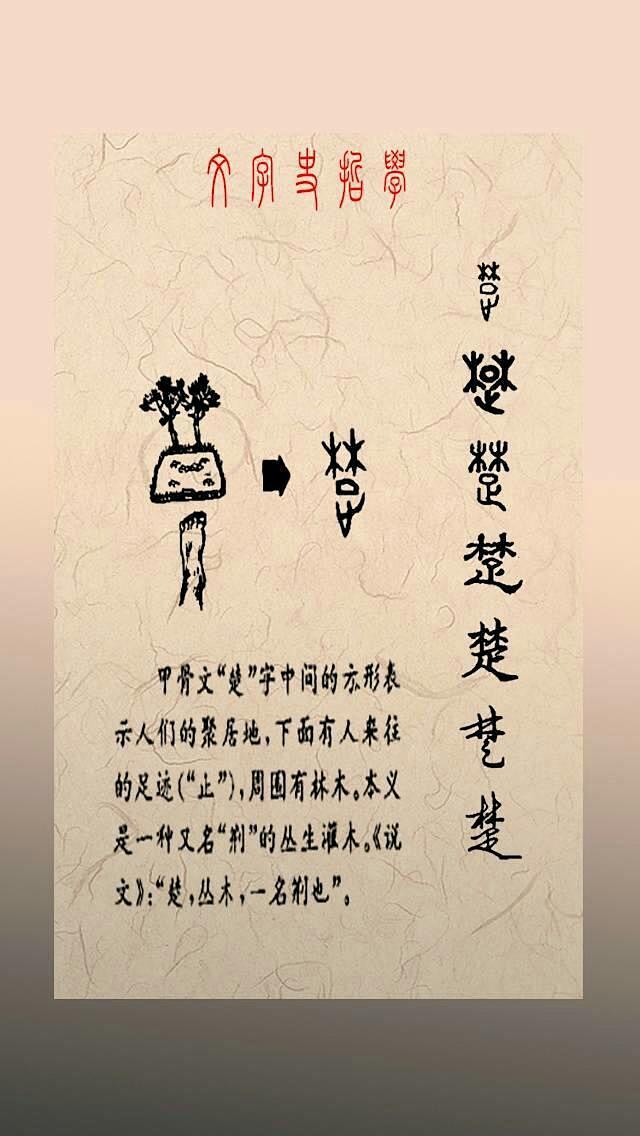 文字史哲學
楚
甲骨文“楚”字中间的方形表
示人们的聚居地,下面有人来往
的足迹(“止”),周围有林木。本义
是一种又名“荆”的丛生灌木。《说
文》:“楚,丛木,一名荆也”。
楚
楚
楚
楚
楚
楚
楚